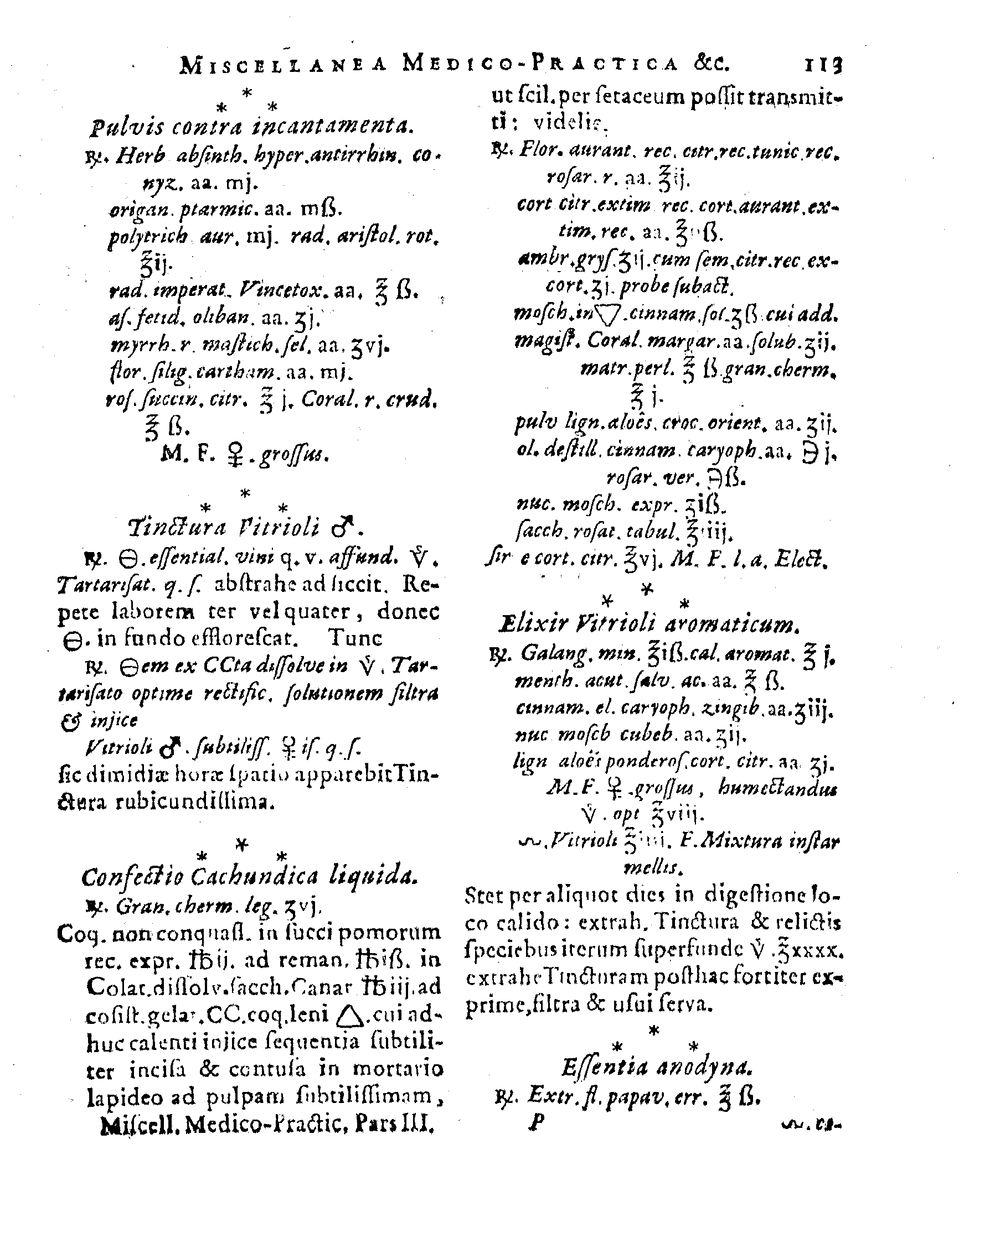 MISCELLANEA MEDICO-PRACTICA &c. 113
* * *
Pulvis contra incantamenta.
℞. Herb absinth. hyper. antirrhin. co-
nyz. aa. mj.
origan. ptarmic. aa. mß.
polytrich aur. mj. rad. aristol. rot.
℥ij.
rad. imperat. Vincetox. aa. ℥ ß.
as. fetid. oliban. aa. ʒj.
myrrh. r. mastich. sel. aa. ʒvj.
flor. silig. cartham. aa. mj.
ros. succin. citr. ℥ j. Coral. r. crud.
℥ ß.
M. F. ♀. grossus.
* * *
Tinctura Vitrioli ♂.
℞. ⊖. essential. vini q. v. affund. V̇.
Tartarisat. q. s. abstrahe ad siccit. Re-
pete laborem ter vel quater, donec
⊖. in fundo efflorescat. Tunc
℞. ⊖em ex CCta dissolve in V̇. Tar-
tarisato optime rectific. solutionem filtra
& injice
Vitrioli ♂. subtiliss. ♀ is. q. s.
sic dimidiæ horæ spatio apparebit Tin-
ctura rubicundissima.
* * *
Confectio Cachundica liquida.
℞. Gran. cherm. leg. ʒvj.
Coq. non conquass. in succi pomorum
rec. expr. ℔ij. ad reman. ℔iß. in
Colat. dissolv. sacch. Canar ℔iij. ad
cosist. gelat. CC. coq. leni △. cui ad-
huc calenti injice sequentia subtili-
ter incisa & contusa in mortario
lapideo ad pulpam subtilissimam,
Miscell. Medico-Practic, Pars III.
ut scil. per setaceum possit transmit-
ti: videlic.
℞. Flor. aurant. rec. citr. rec. tunic rec.
rosar. r. aa. ℥ij.
cort citr. extim rec. cort. aurant. ex-
tim. rec. aa. ℥ ß.
ambr. grys. ʒij. cum sem. citr. rec ex-
cort. ʒj. probe subact.
mosch. in ▽. cinnam. sol. ʒß cui add.
magist. Coral. margar. aa. solub. ʒij.
matr. perl. ℥ ß. gran. cherm.
℥ j.
pulv lign. aloës. croc. orient. aa. ʒij.
ol. destill. cinnam. caryoph. aa. ℈ j.
rosar. ver. ℈ß.
nuc. mosch. expr. ʒiß.
sacch. rosat. tabul. ℥iij.
sir e cort. citr. ℥vj. M. F. l. a. Elect.
* * *
Elixir Vitrioli aromaticum.
℞. Galang. min. ℥iß. cal. aromat. ℥ j.
menth. acut. salv. ac. aa. ℥ ß.
cinnam. el. caryoph. zingib. aa. ʒiij.
nuc mosch cubeb. aa. ʒij.
lign aloës ponderos. cort. citr. aa. ʒj.
M. F. ♀. grossus, humectandus
V̇. opt ℥viij.
〰. Vitrioli ℥ F. Mixtura instar
mellis.
Stet per aliquot dies in digestione lo-
co calido: extrah. Tinctura & relictis
speciebus iterum superfunde V̇. ℥xxxx.
extrahe Tincturam posthac fortiter ex-
prime, filtra & usui serva.
* * *
Essentia anodyna.
℞. Extr. fl. papav. err. ℥ ß.
P 〰. ci-